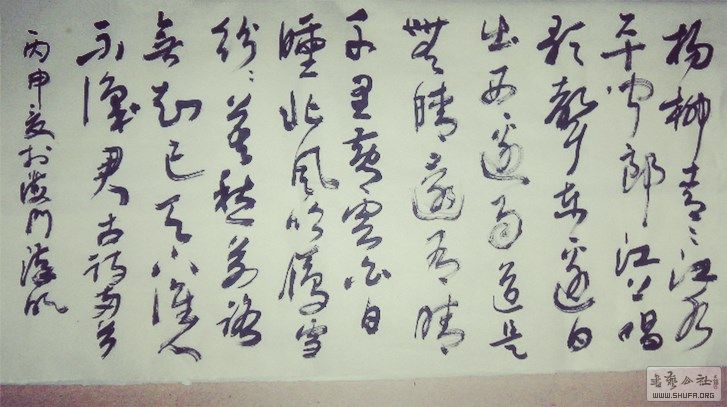 杨柳青々江水
平闻郎江上唱
歌聲东邊日
出西邊雨道是
無晴還有晴
千里黄雲白日
曛北風吹雁雪
纷々莫愁前路
無知己天下誰人
不識君古诗两首
丙申夏於
書藝公社
WWW.SHUFA.ORG